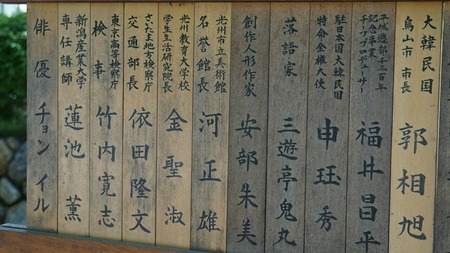 大韓民国
烏山市 市長
郭相旭
平城遷都千三百年
記念事業
チーフプロデューサー
福井昌平
駐日本国大韓民国
特命全権大使
申珏秀
落語家
三遊亭鬼丸
創作人形作家
安部朱美
光州市立美術館
名誉館長
河正雄
光州教育大学校
学生生活研究院長
金聖淑
さいたま地方検察庁
交通部長
依田隆文
東京高等検察庁
検事
竹内寛志
新潟産業大学
専任講師
蓮池薫
俳優
チョンイル